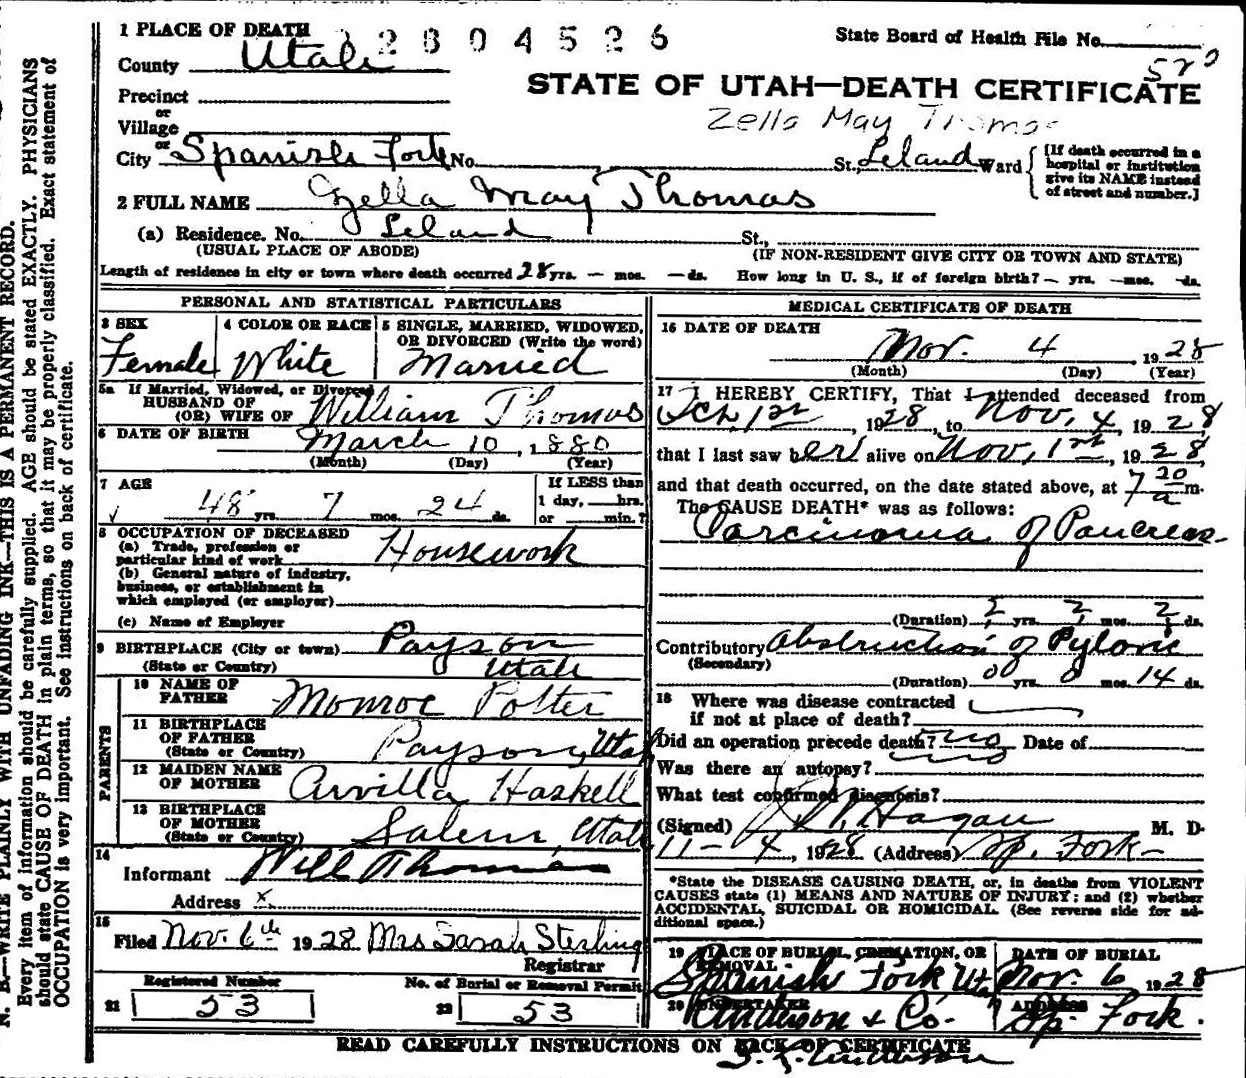 1 PLACE OF DEATH 2804526 State Board of Health File No.
County Utah 520
STATE OF UTAH—DEATH CERTIFICATE
Precinct
or
Village
Zella May Thomas
or
City Spanish Fork No. St., Leland Ward [If death occurred in a hospital or institution give its NAME instead of street and number.]
2 FULL NAME Zella May Thomas
(a) Residence. No. Leland St.,
(USUAL PLACE OF ABODE) (IF NON-RESIDENT GIVE CITY OR TOWN AND STATE)
Length of residence in city or town where death occurred 28 yrs. — mos. — ds. How long in U. S., if of foreign birth? — yrs. — mos. — ds.
PERSONAL AND STATISTICAL PARTICULARS
3 SEX 4 COLOR OR RACE 5 SINGLE, MARRIED, WIDOWED,
OR DIVORCED (Write the word)
Female White Married
5a If Married, Widowed, or Divorced
HUSBAND OF
(OR) WIFE OF William Thomas
6 DATE OF BIRTH March 10, 1880
(Month) (Day) (Year)
7 AGE If LESS than
48 yrs. 7 mos. 24 ds. 1 day, hrs.
or min.?
8 OCCUPATION OF DECEASED
(a) Trade, profession or
particular kind of work Housework
(b) General nature of industry,
business, or establishment in
which employed (or employer)
(c) Name of Employer
9 BIRTHPLACE (City or town) Payson
(State or Country) Utah
PARENTS
10 NAME OF
FATHER Monroe Potter
11 BIRTHPLACE
OF FATHER
(State or Country) Payson, Utah
12 MAIDEN NAME
OF MOTHER Arvilla Haskell
13 BIRTHPLACE
OF MOTHER
(State or Country) Salem, Utah
14
Informant Will Thomas
Address x
15
Filed Nov. 6th 1928 Mrs Sarah Sterling
Registrar
Registered Number No. of Burial or Removal Permit
21 53 22 53
MEDICAL CERTIFICATE OF DEATH
16 DATE OF DEATH
Nov. 4, 1928
(Month) (Day) (Year)
17 I HEREBY CERTIFY, That I attended deceased from
Oct, 1st, 1928, to Nov, 4, 1928,
that I last saw her alive on Nov, 1st, 1928,
and that death occurred, on the date stated above, at 7 20 a m.
The CAUSE DEATH* was as follows:
Carcinoma of Pancreas
(Duration) ? yrs. ? mos. ? ds.
Contributory Obstruction of Pyloric
(Secondary)
(Duration) 00 yrs. 0 mos. 14 ds.
18 Where was disease contracted
if not at place of death?
Did an operation precede death? no Date of
Was there an autopsy? no
What test confirmed diagnosis?
(Signed) Hagan M. D.
11-4, 1928 (Address) Sp. Fork
*State the DISEASE CAUSING DEATH, or, in deaths from VIOLENT
CAUSES state (1) MEANS AND NATURE OF INJURY; and (2) whether
ACCIDENTAL, SUICIDAL OR HOMICIDAL. (See reverse side for ad-
ditional space.)
19 PLACE OF BURIAL, CREMATION, OR DATE OF BURIAL
REMOVAL
Spanish Fork Ut. Nov. 6 1928
20 UNDERTAKER ADDRESS
Anderson & Co. Sp. Fork.
READ CAREFULLY INSTRUCTIONS ON BACK OF CERTIFICATE
Anderson
N. B.—WRITE PLAINLY WITH UNFADING INK—THIS IS A PERMANENT RECORD.
Every item of information should be carefully supplied. AGE should be stated EXACTLY. PHYSICIANS
should state CAUSE OF DEATH in plain terms, so that it may be properly classified. Exact statement of
OCCUPATION is very important. See instructions on back of certificate.